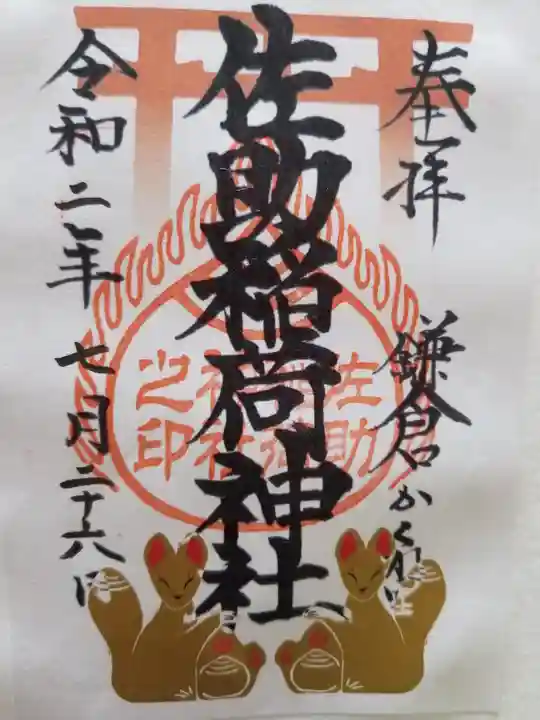 奉拝
鎌倉かくれ里
佐助稲荷神社
佐助稲荷神社之印
令和二年七月二十六日